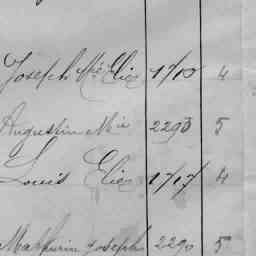 Joseph Mie Elie 1710 4
Augustin Mie 2293 5
Louis Elie 1717 4
Mathurin Joseph 2290 5